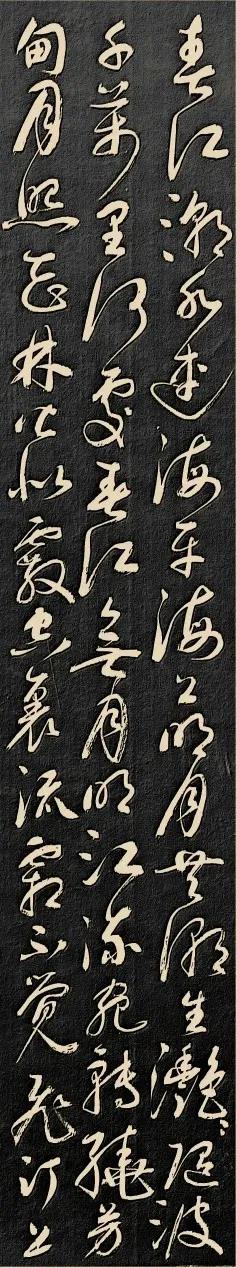 春江潮水連海平海上明月共潮生灩〻隨波
千萬里何處春江無月明江流宛轉繞芳
甸月照花林皆似霰空裏流霜不覺飛汀上